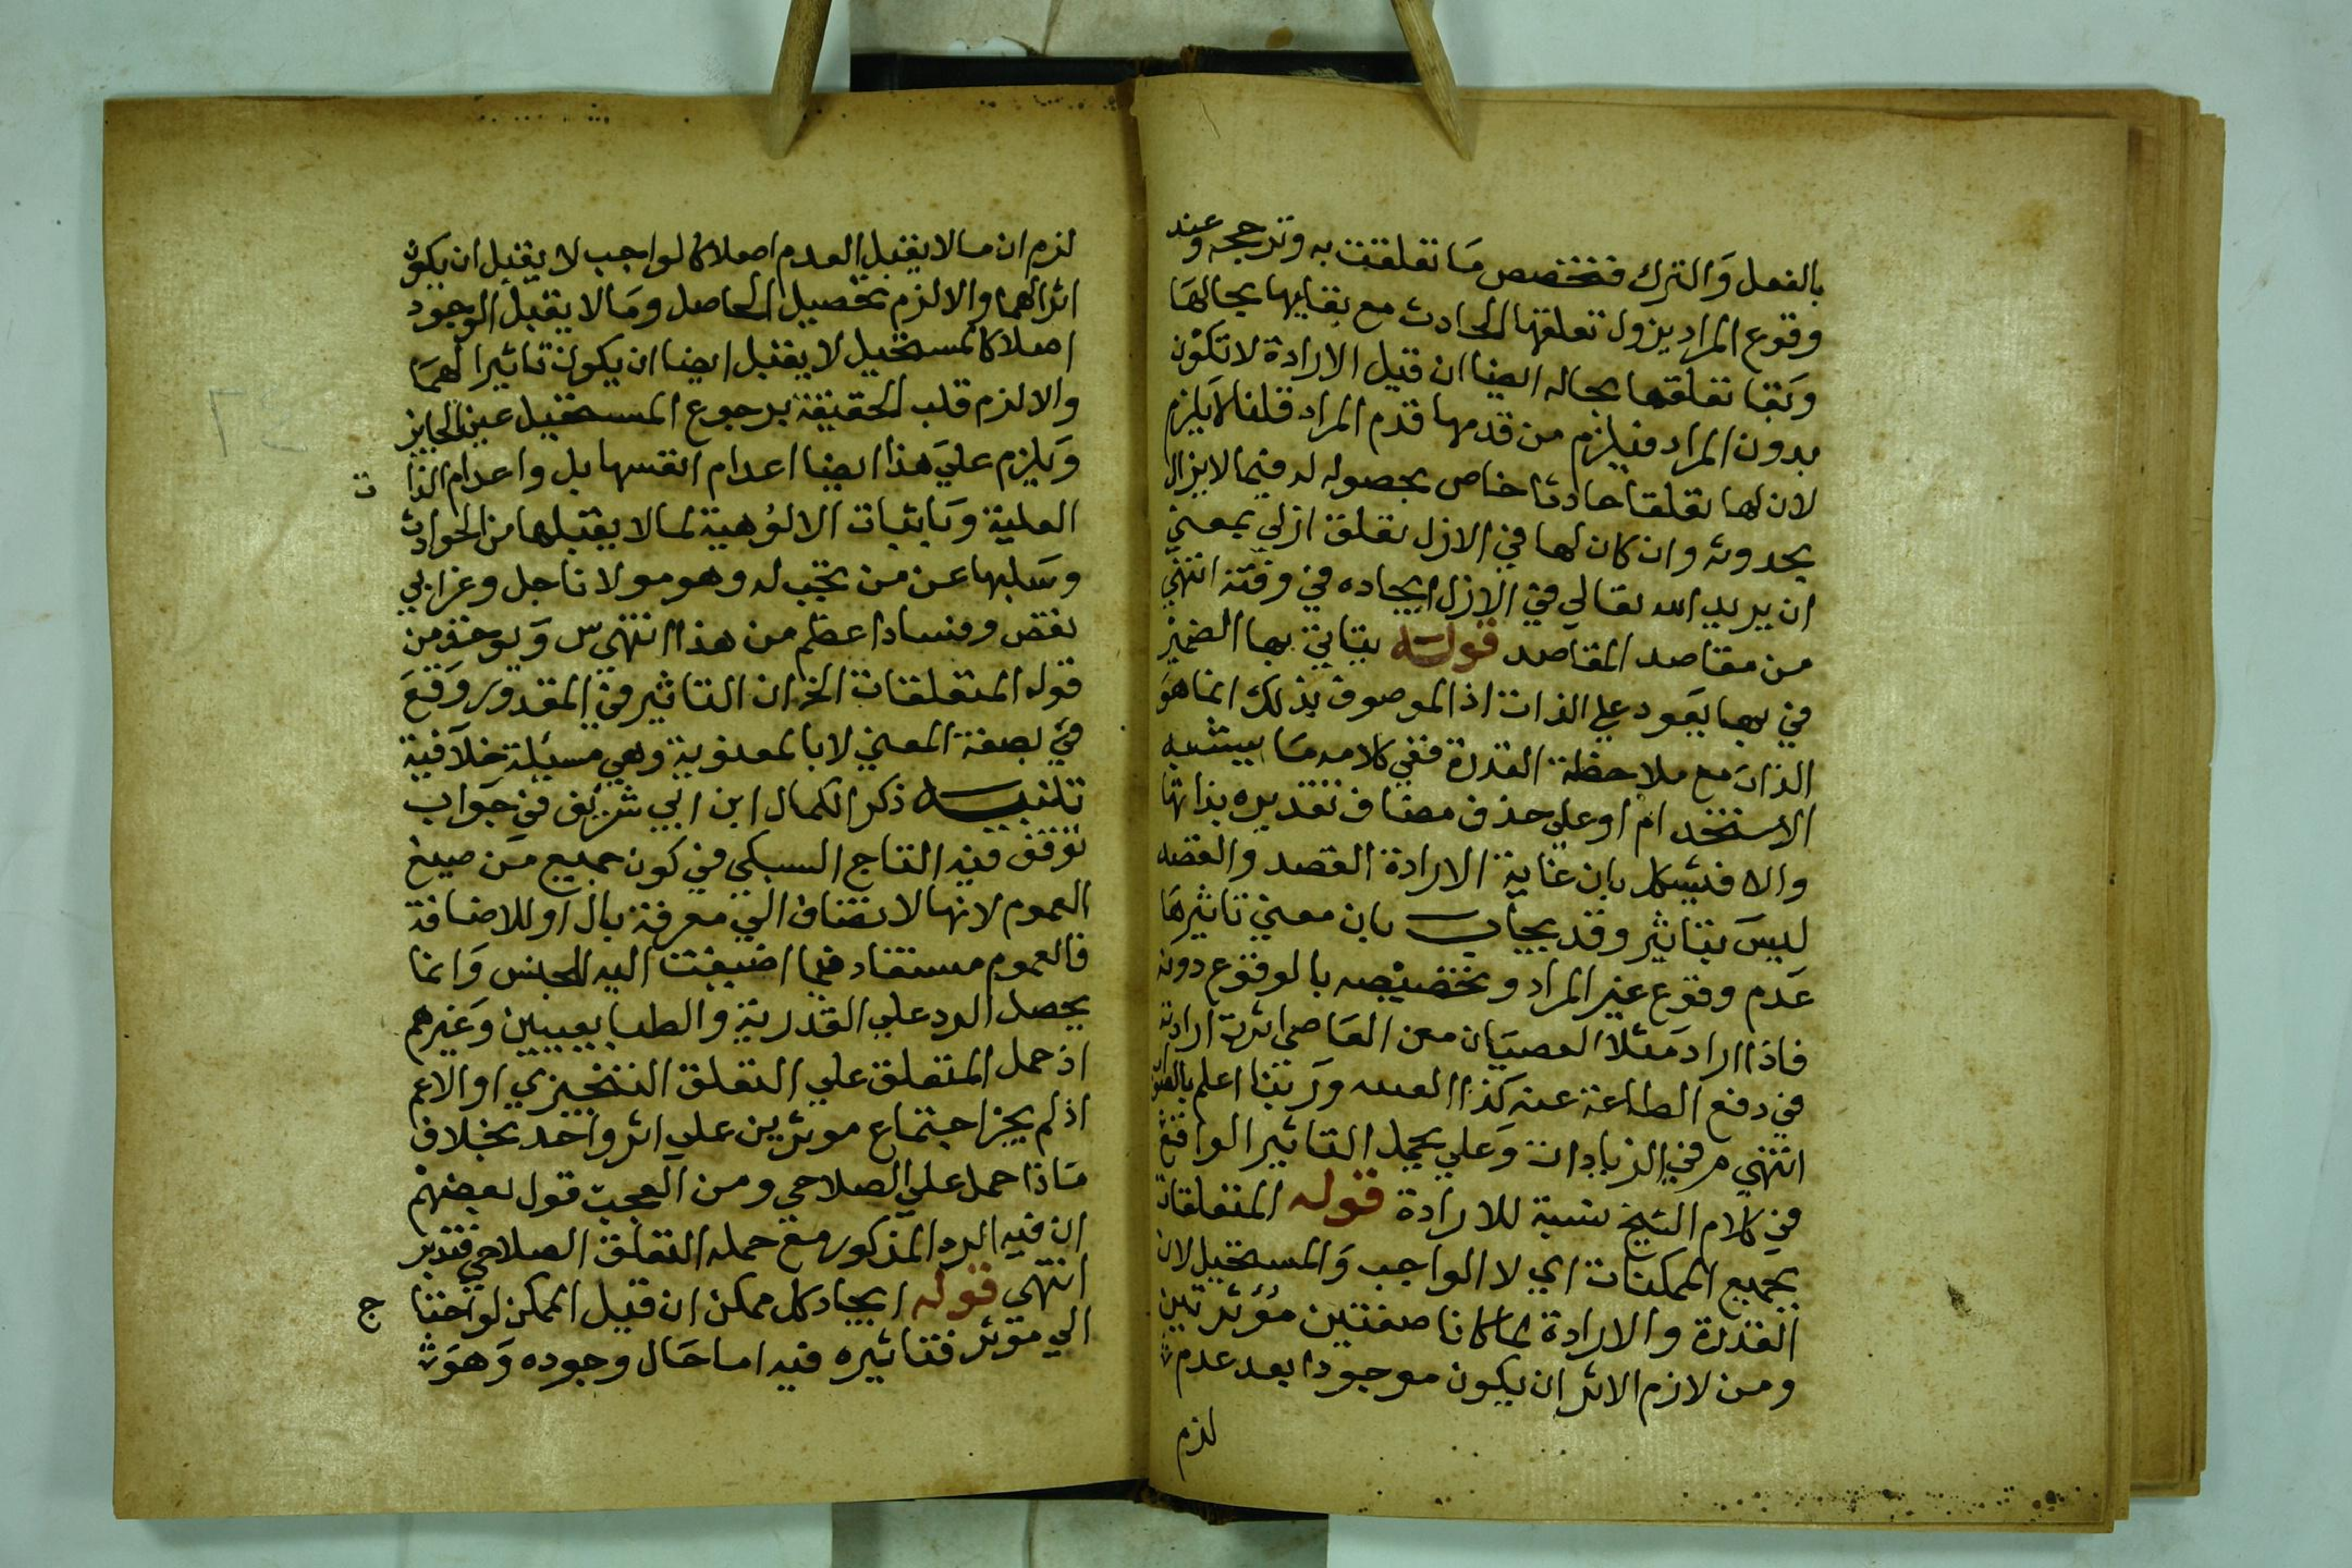 بالفعل والترك فتخصص ما تعلقت به وترجحه وعند
وقوع المراد يزول تعلقها الحادث مع بقايها بحالها
وبقا تعلقها بحاله ايضا ان قيل الارادة لا تكون
بدون المراد فيلزم من قدمها قدم المراد قلنا لا يلزم
لان لها تعلقا حادثا خاص بحصوله له فيما لا يزال
بحدوثه وان كان لها في الازل تعلق ازلي بمعني
ان يريد الله تعالي في الازل ايجاده في وقته انتهي
من مقاصد المقاصد قوله يتاتي بها الضمير
في بها يعود علي الذات اذ الموصوف بذلك انما هو
الذات مع ملاحظة القدرة ففي كلامه ما يشبه
الاستخدام او علي حذف مضاف تقديره بذاتها
والا فيشكل بان غاية الارادة القصد والقصد
ليس بتاثير وقد يجاب بان معني تاثيرها
عدم وقوع غير المراد وتخصيصه بالوقوع دونه
فاذا اراد مثلا العصيان من العاصي اثرت ارادته
في دفع الطاعة عنه كذا وربنا اعلم
انتهي م في الزيادات وعلي يحمل التاثير الواقع
في كلام الشيخ نسبة للارادة قوله المتعلقات
بجميع الممكنات اي لا الواجب والمستحيل لان
القدرة والارادة لما كانا صفتين مؤثرتين
ومن لازم الاثر ان يكون موجودا بعد عدم
لزم
لزم ان ما لا يقبل العدم اصلا كالواجب لا يقبل ان يكون
اثرا لهما والا لزم تحصيل الحاصل وما لا يقبل الوجود
اصلا كالمستحيل لا يقبل ايضا ان يكون تاثيرا لهما
والا لزم قلب الحقيقة برجوع المستحيل عين الجايز
ويلزم علي هذا ايضا اعدام انفسها بل واعدام الذا ت
العلية وباثبات الالوهية لما لا يقبلها من الحوادث
وسلبها عن من تجب له وهو مولانا جل وعز اي
نقص وفساد اعظم من هذا انتهي س ويوخذ من
قوله المتعلقات الخ ان التاثير في المقدور وقع
في بصفة المعني لا بالمعنوية وهي مسيلة خلافية
تنبيه ذكر الكمال ابن ابي شريف في جواب
توقف فيه التاج السبكي في كون جميع من صيغ
العموم لانها لا تضاف الي معرفة بال او للاضافة
فالعموم مستفاد فيما اضيفت اليه للجنس وانما
يحصل الرد علي القدرية والطبايعيين وغيرهم
اذ حمل المتعلق علي التعلق التنجيزي او الاعم
اذ لم يجز اجتماع موثرين علي اثر واحد بخلاف
ما اذا حمل علي الصلاحي ومن العجب قول بعضهم
ان فيه الرد المذكور مع حمله التعلق الصلاحي فتدبر
انتهي قوله ايجاد كل ممكن ان قيل الممكن لو احتا ج
الي موثر فتاثيره فيه اما حال وجوده وهو